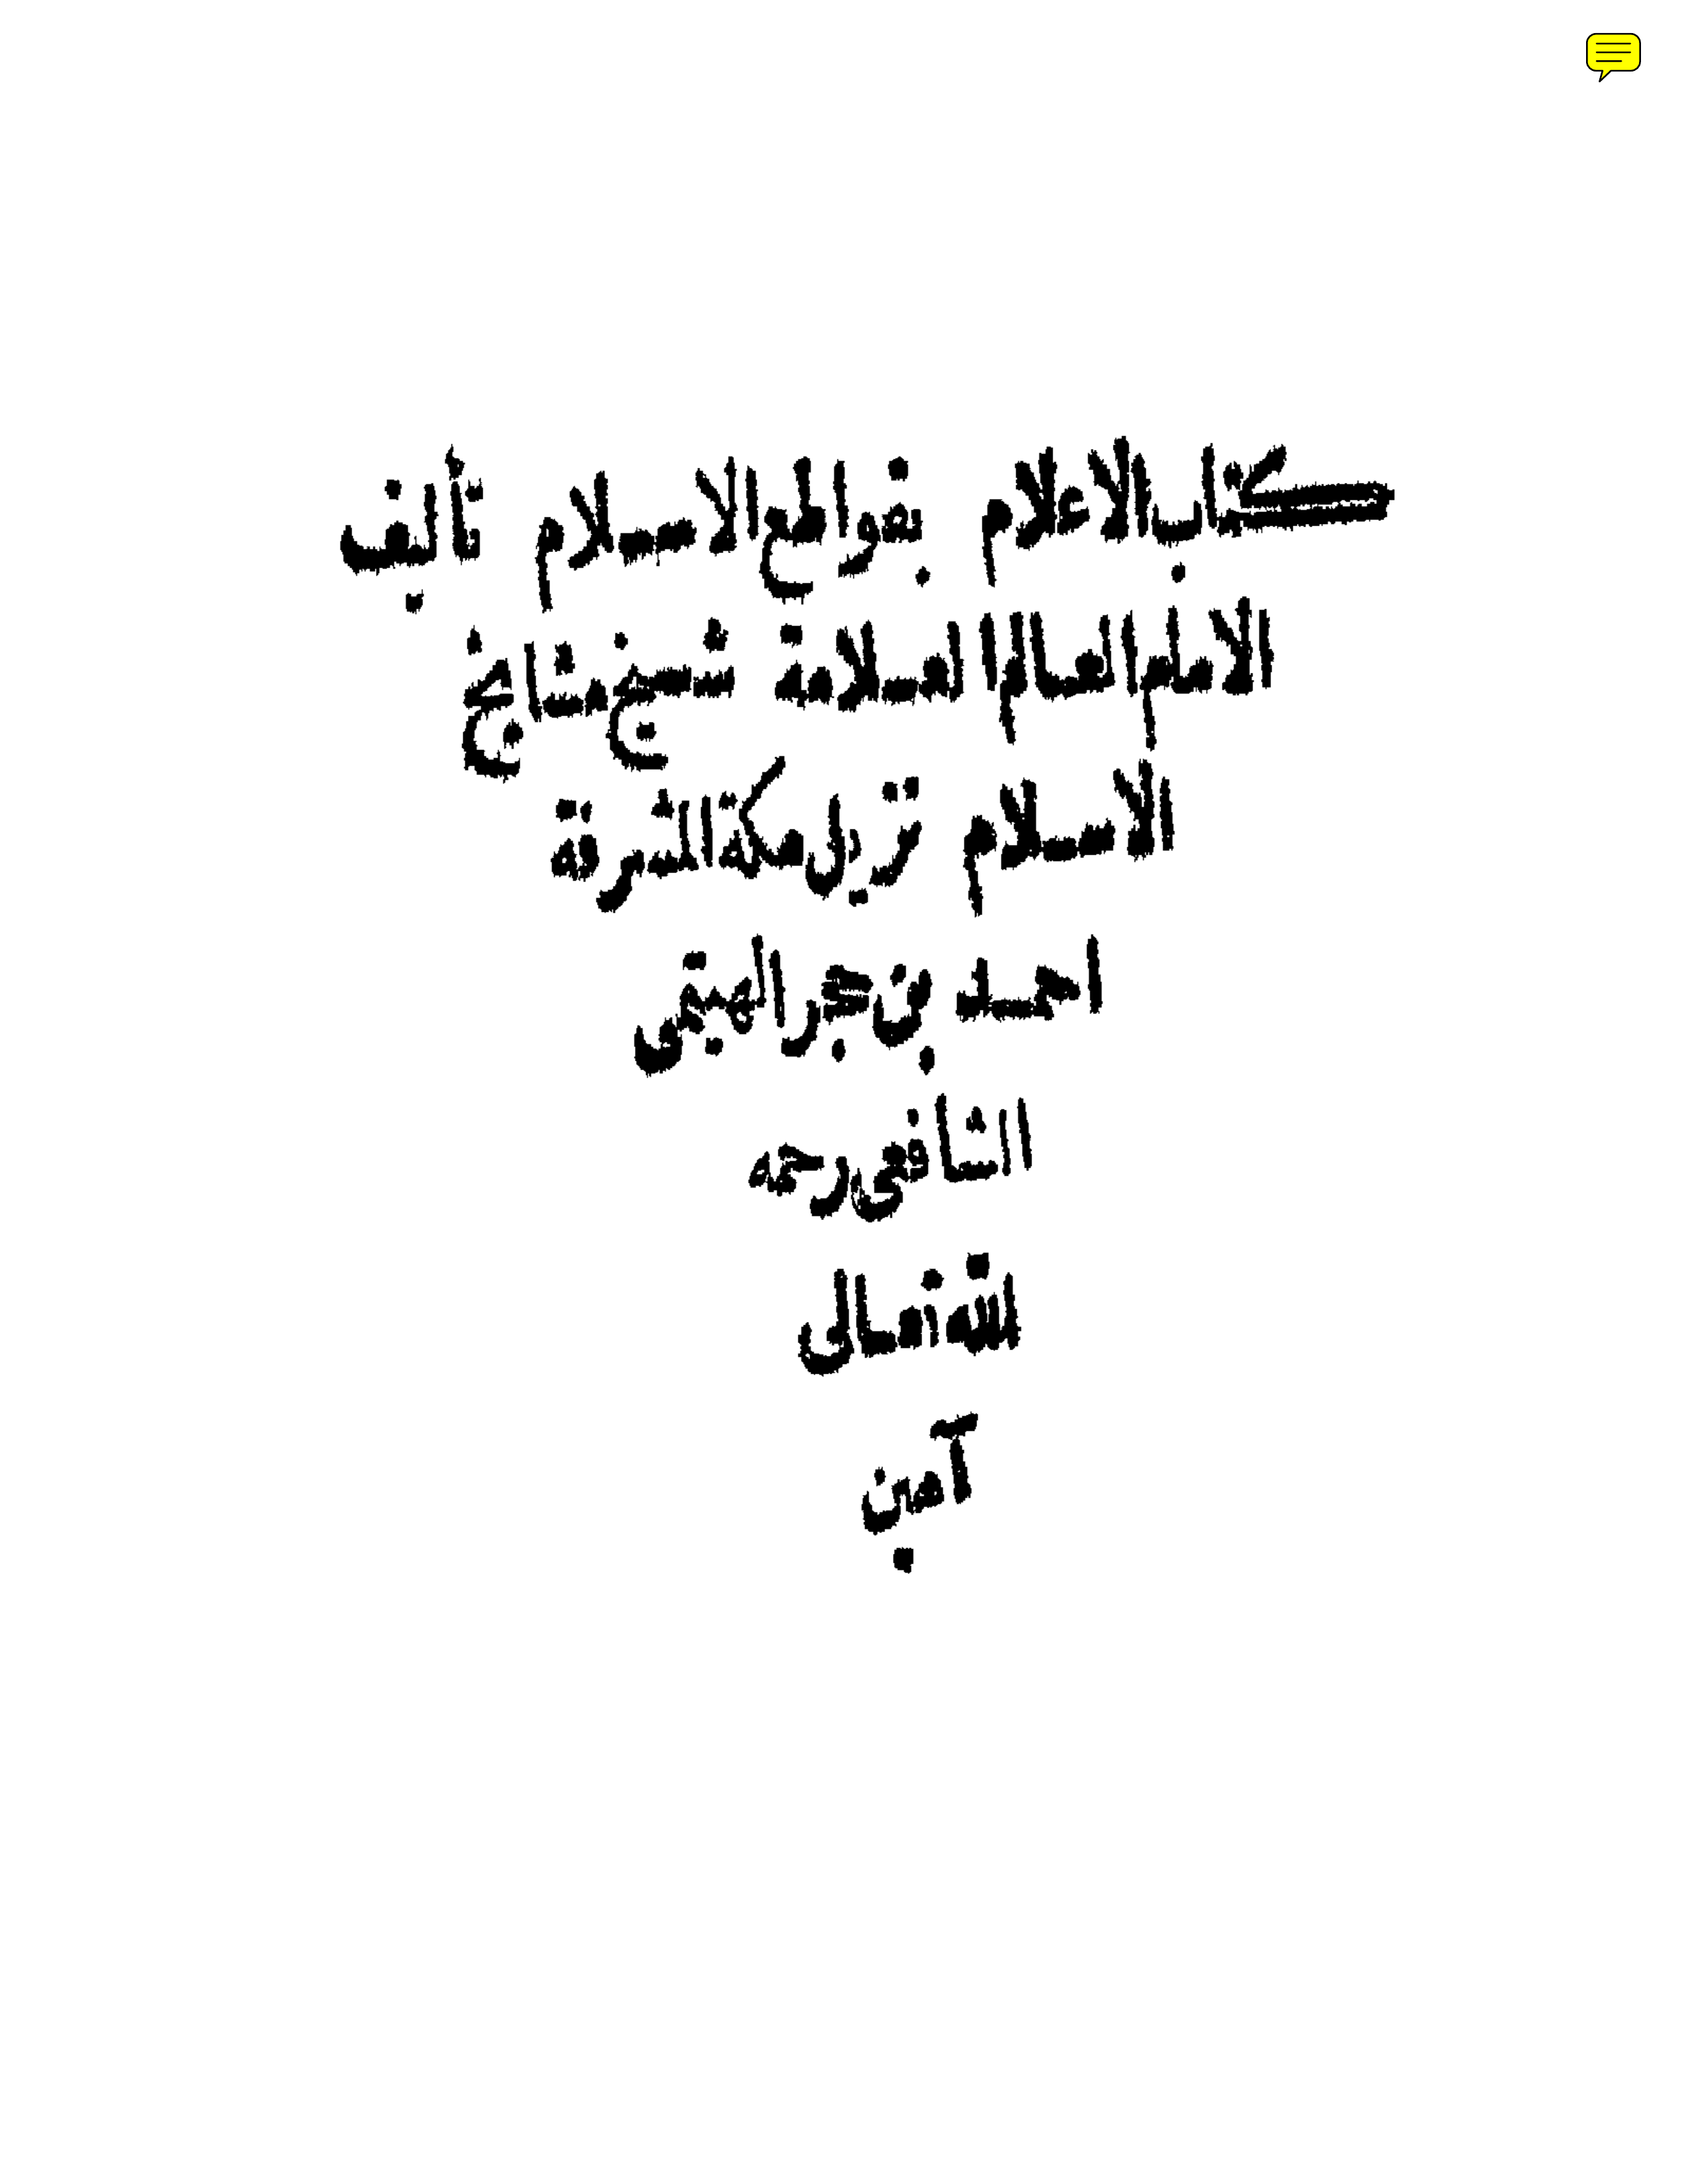 كتاب الاعلام بقواطع الاسلام تأليف
الامام العالم العلامة شيخ مشايخ
الاسلام نزيل مكة المشرفة
احمد بن حجر الهيتمى
الشافعى رحمه
الله تعالى
آمين